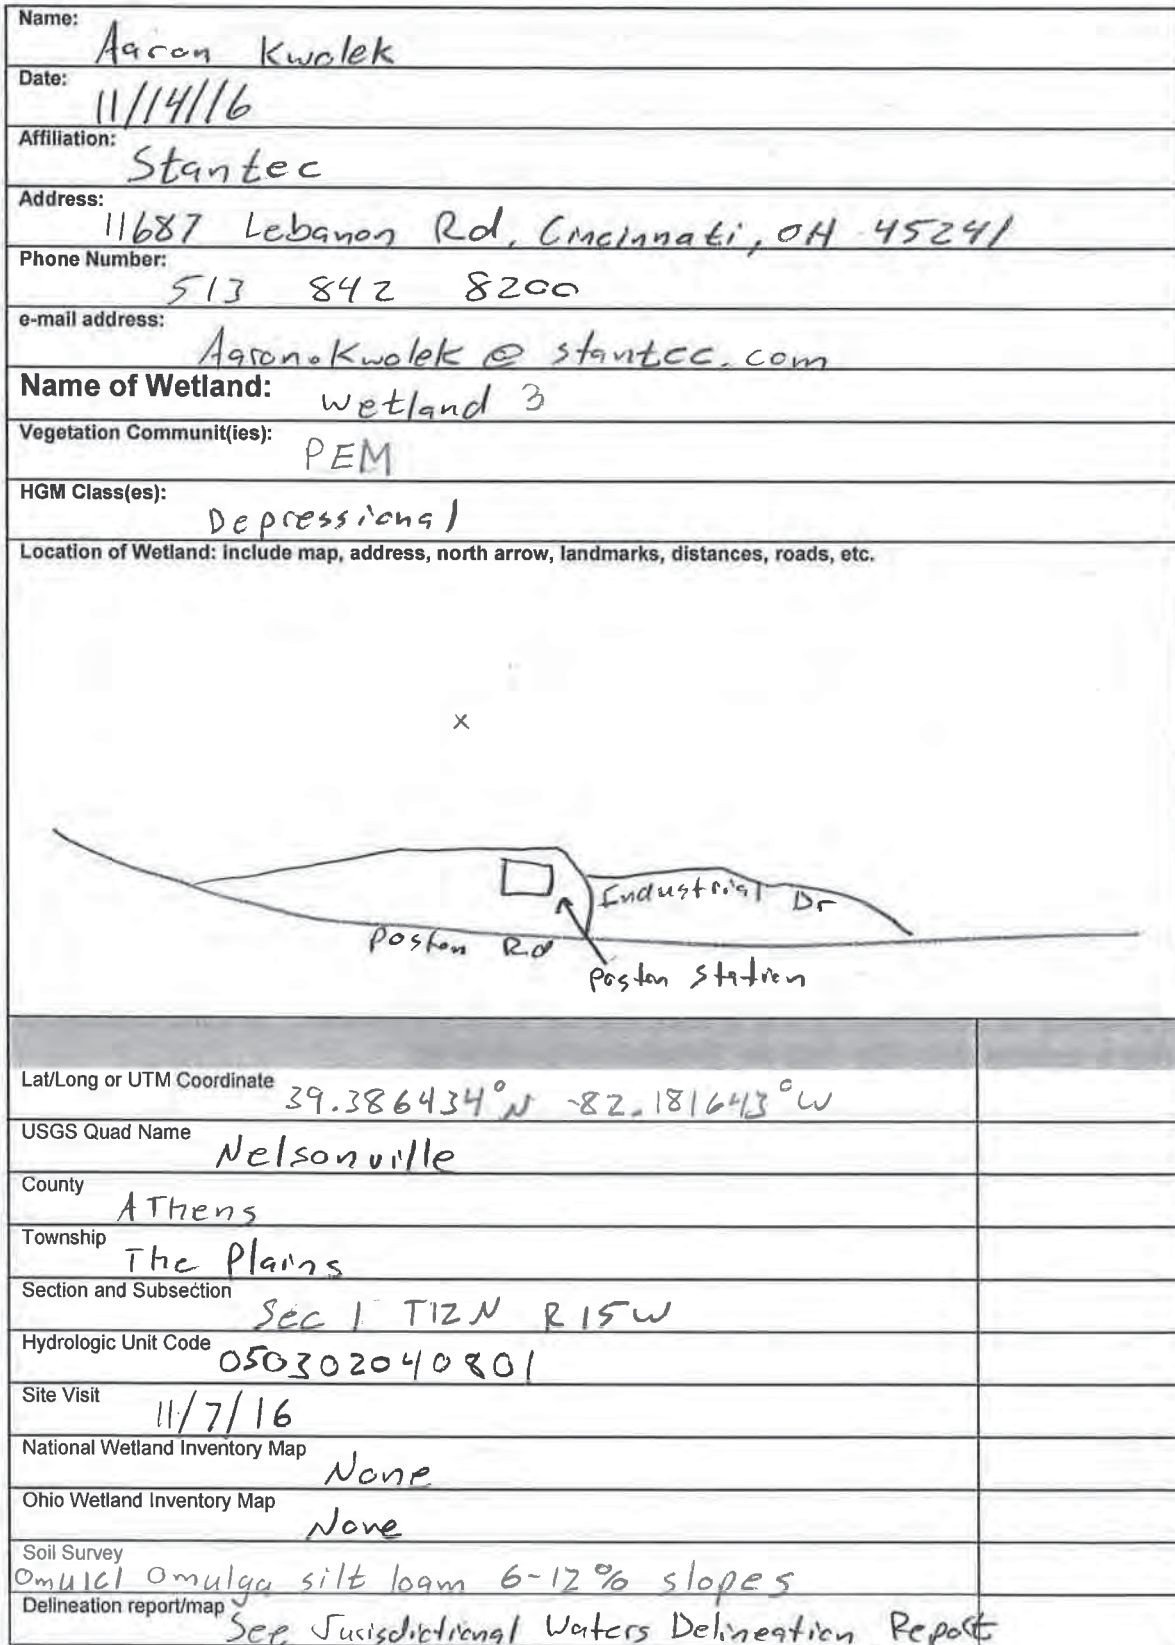 Name:
Aaron Kwolek
Date:
11/14/16
Affiliation:
Stantec
Address:
11687 Lebanon Rd, Cincinnati, OH 45241
Phone Number:
513 842 8200
e-mail address:
Aaron.Kwolek @ stantec.com
Name of Wetland: Wetland 3
Vegetation Communit(ies):
PEM
HGM Class(es):
Depressional
Location of Wetland: include map, address, north arrow, landmarks, distances, roads, etc.
x
Industrial Dr
Poston Rd
Poston Station
Lat/Long or UTM Coordinate 39.386434°N -82.181643°W
USGS Quad Name
Nelsonville
County
AThens
Township
The Plains
Section and Subsection
Sec 1 T12N R15W
Hydrologic Unit Code 050302040801
Site Visit
11/7/16
National Wetland Inventory Map
None
Ohio Wetland Inventory Map
None
Soil Survey
Omu1C1 Omulga silt loam 6-12% slopes
Delineation report/map
See Jurisdictional Waters Delineation Report